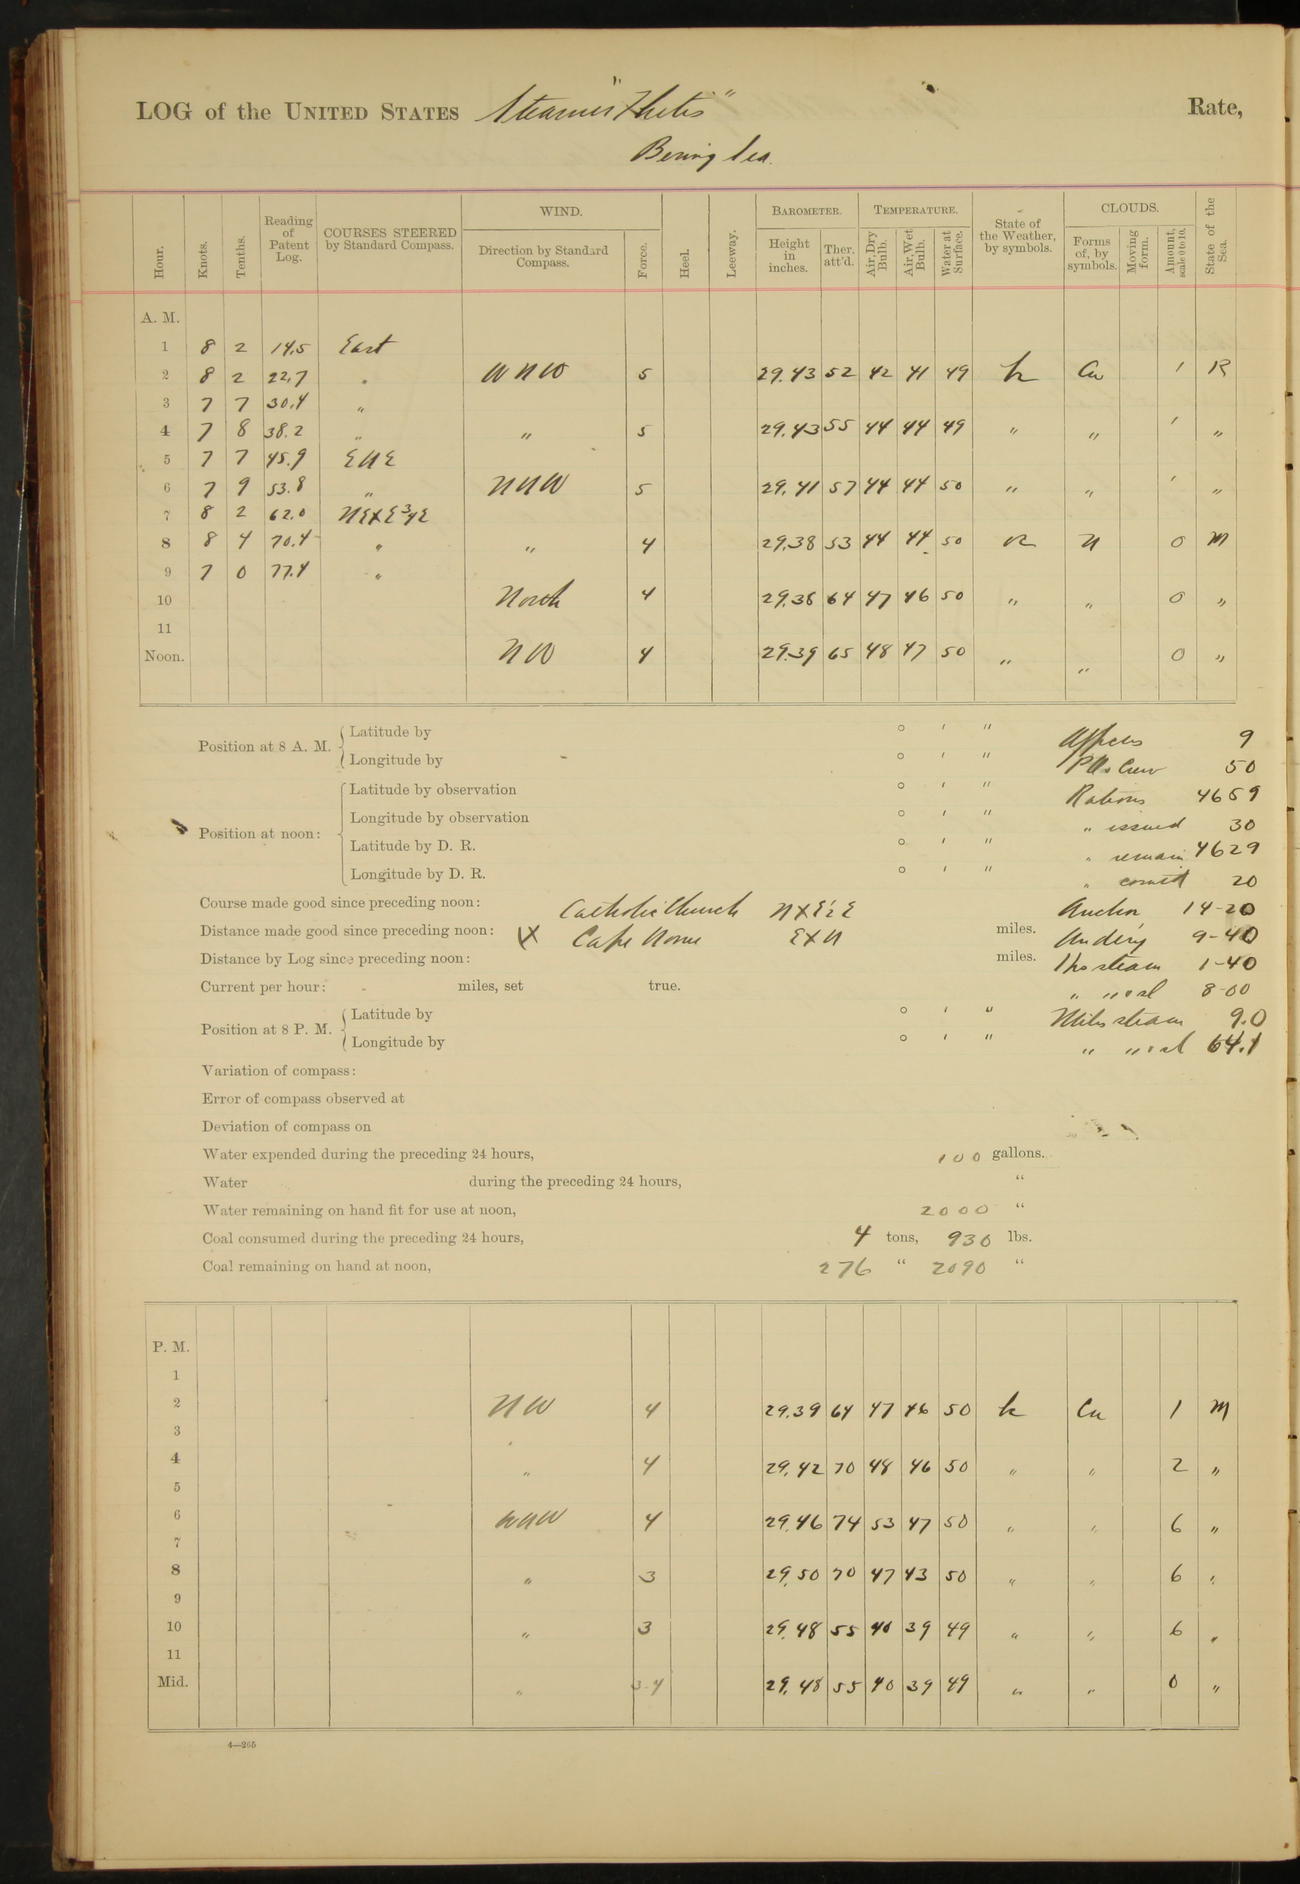 LOG of the UNITED STATES Steamer "Thetis" Rate,
Bering Sea.
Hour. Knots. Tenths. Reading of Patent Log. COURSES STEERED by Standard Compass. WIND. Direction by Standard Compass. Force. Heel. Leeway. BAROMETER. Height in inches. Ther. att'd. TEMPERATURE. Air, Dry Bulb. Air, Wet Bulb. Water at Surface. State of the Weather, by symbols. CLOUDS. Forms of, by symbols. Moving form. Amount, scale 0 to 10. State of the Sea.
A. M.
1 8 2 14.5 East
2 8 2 22.7 " WNW 5 29.43 52 42 41 49 Cu 1 R
3 7 7 30.4 "
4 7 8 38.2 " " 5 29.43 55 44 44 49 " " 1 "
5 7 7 45.9 ENE
6 7 9 53.8 " NNW 5 29.41 57 44 44 50 " " 1 "
7 8 2 62.0 NExE3/4E
8 8 4 70.4 " " 4 29.38 53 44 44 50 N 0 M
9 7 0 77.4 "
10 North 4 29.38 64 47 46 50 " " 0 "
11
Noon. NW 4 29.39 65 48 47 50 " " 0 "
Position at 8 A. M. Latitude by ° ′ ″ Officers 9
Longitude by ° ′ ″ Crew 50
Position at noon: Latitude by observation ° ′ ″ Rations 4659
Longitude by observation ° ′ ″ " issued 30
Latitude by D. R. ° ′ ″ " remain 4629
Longitude by D. R. ° ′ ″ " 20
Course made good since preceding noon: Catholic Church NxE1/2E Anchor 14-20
Distance made good since preceding noon: Cape Nome ExN miles. Under'y 9-40
Distance by Log since preceding noon: miles. Hrs steam 1-40
Current per hour: miles, set true. " " & sl 8-00
Position at 8 P. M. Latitude by ° ′ ″ Miles steam 9.0
Longitude by ° ′ ″ " " & sl 64.1
Variation of compass:
Error of compass observed at
Deviation of compass on
Water expended during the preceding 24 hours, 100 gallons.
Water during the preceding 24 hours, "
Water remaining on hand fit for use at noon, 2000 "
Coal consumed during the preceding 24 hours, 4 tons, 930 lbs.
Coal remaining on hand at noon, 276 " 2090 "
P. M.
1
2 NW 4 29.39 64 47 46 50 Cu 1 M
3
4 " 4 29.42 70 48 46 50 " " 2 "
5
6 WNW 4 29.46 74 53 47 50 " " 6 "
7
8 " 3 29.50 70 47 43 50 " " 6 "
9
10 " 3 29.48 55 40 39 49 " " 6 "
11
Mid. " 3-4 29.48 55 40 39 49 " " 0 "
4—265